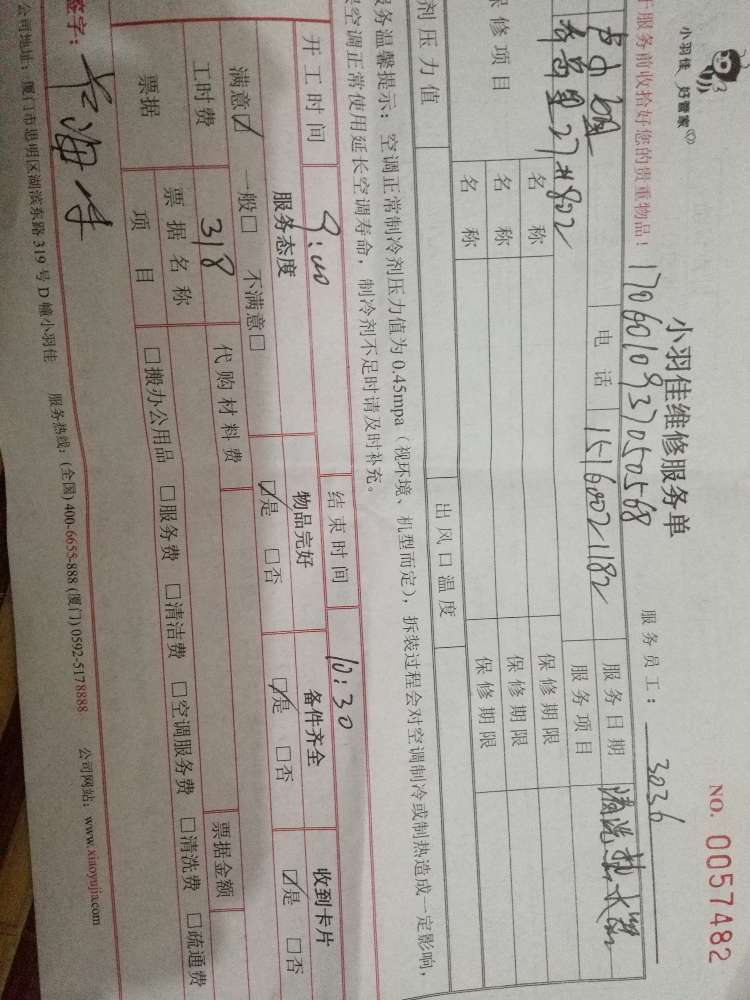 小羽佳 好管家
NO. 0057482
小羽佳维修服务单
于服务前收拾好您的贵重物品！
服务员工：3036
1706010937050568
电话 15160021182 服务日期
27#802 服务项目 清洗热水器
保修项目 名称 保修期限
名称 保修期限
名称 保修期限
剂压力值 出风口温度
务温馨提示：空调正常制冷剂压力值为0.45mpa（视环境、机型而定），拆装过程会对空调制冷或制热造成一定影响，
空调正常使用延长空调寿命，制冷剂不足时请及时补充。
开工时间 9:00 结束时间 10:30
服务态度 物品完好 备件齐全 收到卡片
满意☑ 一般□ 不满意□ ☑是 □否 ☑是 □否 ☑是 □否
工时费 318 代购材料费 票据金额
票据 票据名称
项目 □搬办公用品 □服务费 □清洁费 □空调服务费 □清洗费 □疏通费
签字：
公司地址：厦门市思明区湖滨东路319号D幢小羽佳 服务热线：(全国)400-6655-888 (厦门)0592-5178888 公司网站：www.xiaoyujia.com